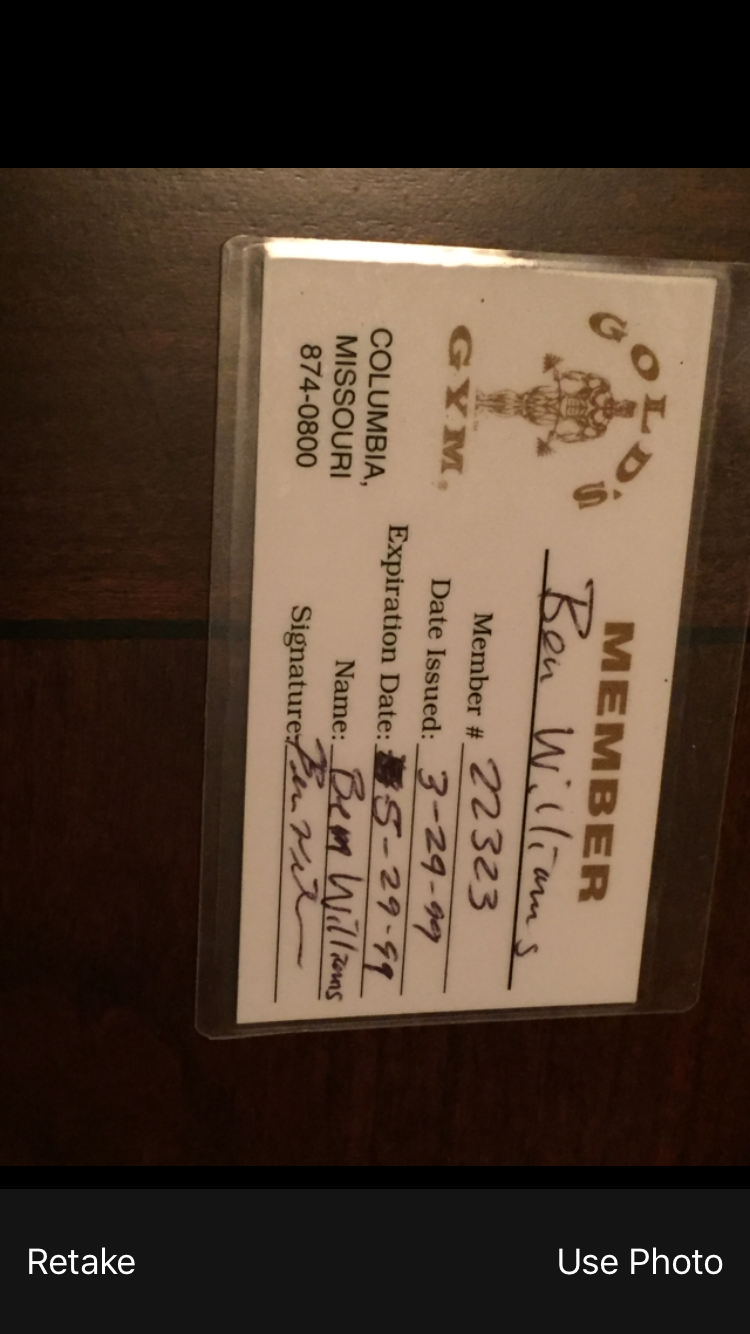 GOLD'S
GYM
COLUMBIA,
MISSOURI
874-0800
MEMBER
Ben Williams
Member # 22323
Date Issued: 3-29-99
Expiration Date: 5-29-99
Name: Ben Williams
Signature: Ben
Retake
Use Photo